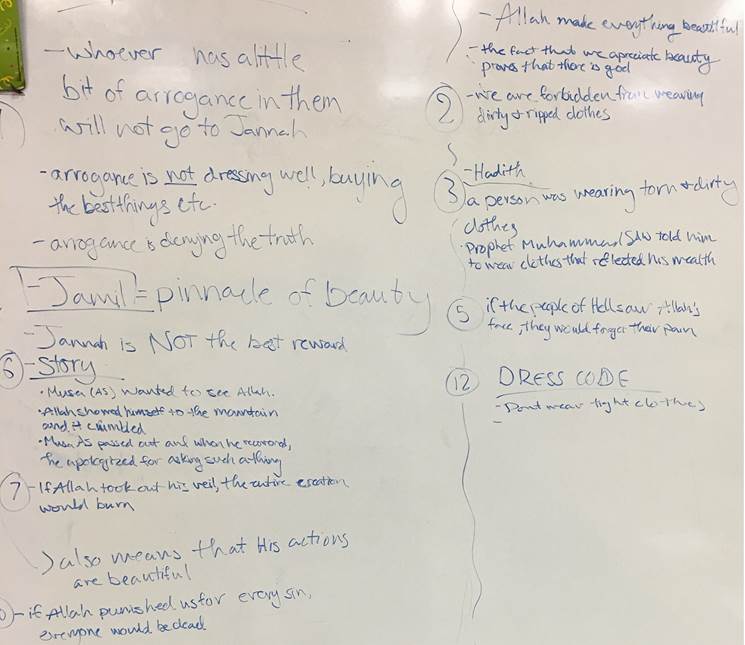 - whoever has a little
bit of arrogance in them
will not go to Jannah
- arrogance is not dressing well, buying
the best things etc.
- arrogance is denying the truth
- Jamil = pinnacle of beauty
- Jannah is NOT the best reward
6 - Story
• Musa (AS) wanted to see Allah.
• Allah showed himself to the mountain
and it crumbled
• Musa AS passed out and when he recovered,
he apologized for asking such a thing
7 - If Allah took out his veil, the entire creation
would burn
> also means that His actions
are beautiful
- if Allah punished us for every sin,
everyone would be dead
- Allah make everything beautiful
- the fact that we apreciate beauty
proves that there is god
2 - we are forbidden from wearing
dirty & ripped clothes
- Hadith
3 a person was wearing torn & dirty
clothes
• Prophet Muhammad SAW told him
to wear clothes that reflected his wealth
5 if the people of Hell saw Allah's
face, they would forget their pain
12 DRESS CODE
- Dont wear tight clothes
-